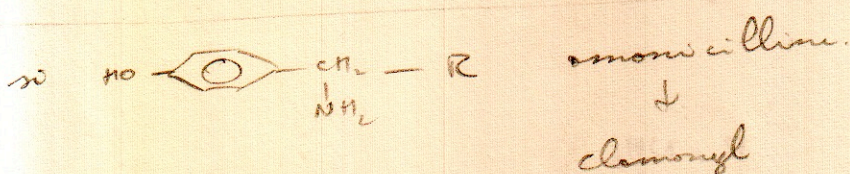 si HO — CH2 — R amoxicilline.
NH2
↓
clamoxyl